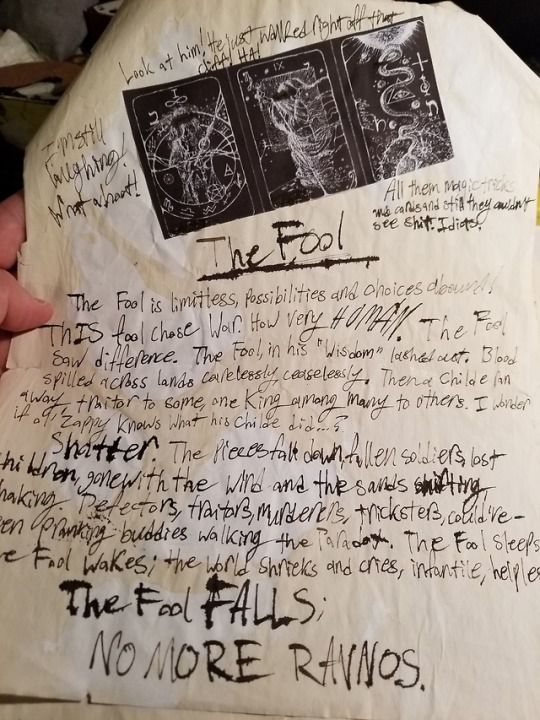 Look at him! He just walked right off that
cliff! HA!
I'm still
laughing!
What a hoot!
I
IX
All them magic tricks
and cards and still they couldn't
see shit. Idiots.
The Fool
The Fool is limitless, Possibilities and choices abound!
THIS fool chose War. How very HUMAN. The Fool
saw difference. The Fool, in his "Wisdom" lashed out. Blood
spilled across lands carelessly, ceaselessly. Then a Childe ran
away, traitor to some, one King among many to others. I wonder
if Zappy knows what his childe did...?
Shatter. The pieces fall down, fallen soldiers, lost
children, gone with the wind and the sands
shaking. Defectors, traitors, murderers, tricksters, could've-
been pranking buddies walking the Paradox. The Fool sleeps
The Fool Wakes; the world shrieks and cries, infantile, helpless
The Fool FALLS;
NO MORE RAVNOS.